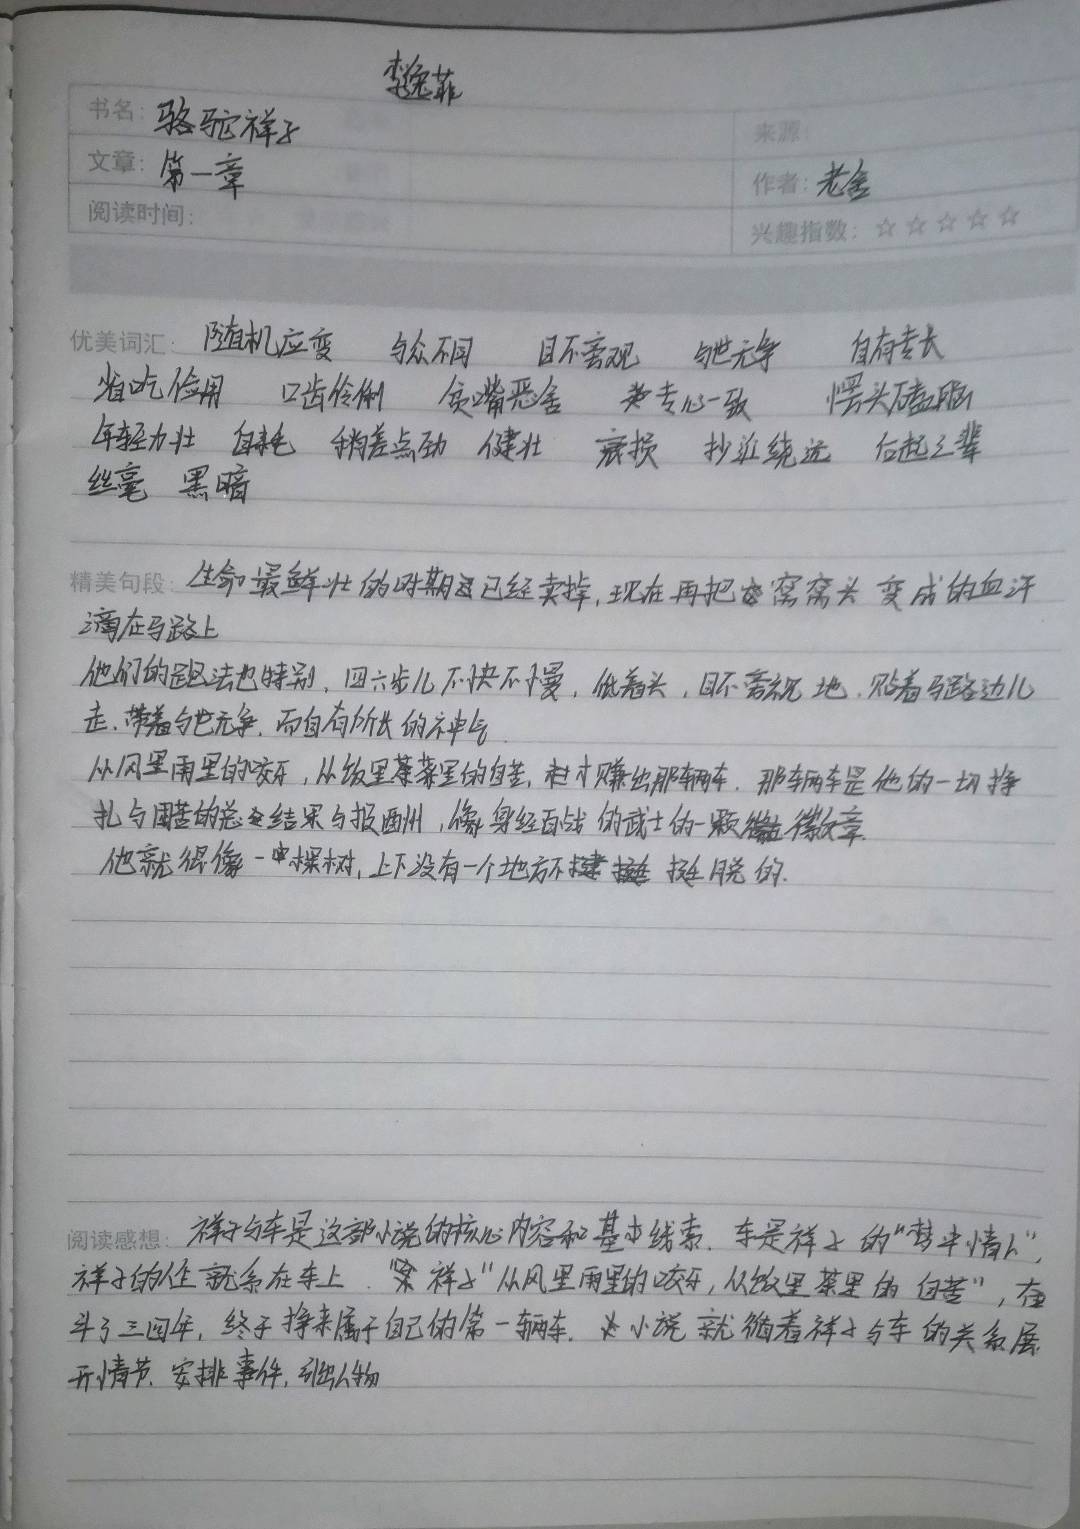 李逸菲
书名：骆驼祥子
来源：
文章：第一章
作者：老舍
阅读时间：
兴趣指数：☆☆☆☆☆
优美词汇：随机应变 与众不同 目不旁观 与世无争 自有专长
省吃俭用 口齿伶俐 贫嘴恶舌 专心一致 愣头磕脑
年轻力壮 自耗 稍差点劲 健壮 衰损 抄近绕远 后起之辈
丝毫 黑暗
精美句段：生命最鲜壮的时期已经卖掉，现在再把窝窝头变成的血汗
滴在马路上
他们的跑法也特别，四六步儿不快不慢，低着头，目不旁观地，贴着马路边儿
走，带着与世无争，而自有所长的神气
从风里雨里的咬牙，从饭里菜里的自苦，才赚出那辆车．那辆车是他的一切挣
扎与困苦的总结果与报酬，像身经百战的武士的一颗徽章．
他就很像一棵树，上下没有一个地方不挺脱的．
阅读感想：祥子与车是这部小说的核心内容和基本线索．车是祥子的“梦中情人”，
祥子的人生就系在车上．祥子“从风里雨里的咬牙，从饭里菜里的自苦”，在
斗了三四年，终于挣来属于自己的第一辆车．小说就循着祥子与车的关系展
开情节．安排事件，引出人物